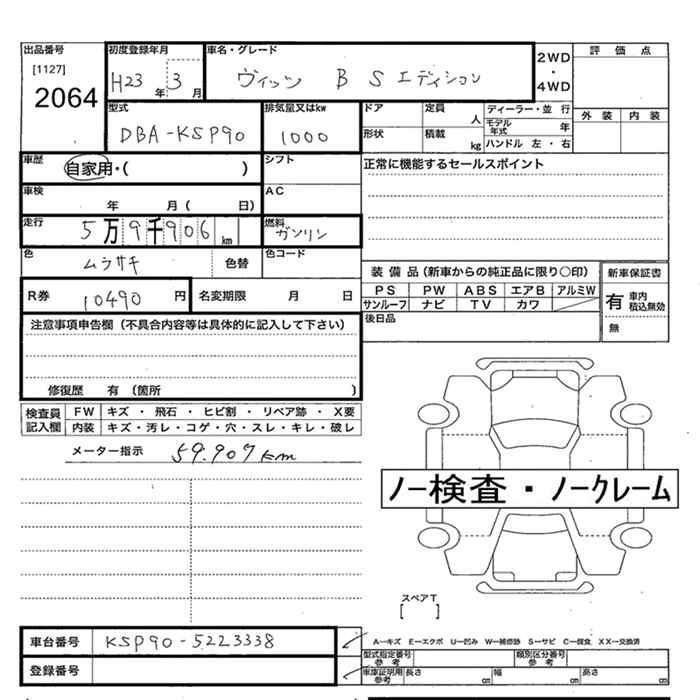 出品番号 初度登録年月 車名・グレード 2WD・4WD 評価点
[1127]
2064
H23年 3月 ヴィッツ B Sエディション
外装 内装
型式 排気量又はkw ドア 定員 人 ディーラー・並行
DBA-KSP90 1000 形状 積載 kg モデル年式 年
ハンドル 左・右
車歴 シフト 正常に機能するセールスポイント
自家用・( )
車検 AC
年 月( 日)
走行 燃料
5万9千906km ガソリン
色 色替 色コード
ムラサキ
装備品(新車からの純正品に限り〇印) 新車保証書
R券 10490円 名変期限 月 日
PS PW ABS エアB アルミW 有 車内 積込無効
サンルーフ ナビ TV カワ
後日品 無
注意事項申告欄(不具合内容等は具体的に記入して下さい)
修復歴 有(箇所 )
検査員記入欄 FW キズ・飛石・ヒビ割・リペア跡・X要
内装 キズ・汚レ・コゲ・穴・スレ・キレ・破レ
メーター指示 59.907km
ノー検査・ノークレーム
スペアT
[ ]
車台番号 KSP90-5223338
A―キズ E―エクボ U―凹み W―補修跡 S―サビ C―腐食 XX―交換済
型式指定番号 参考 類別区分番号 参考
登録番号 車庫証明用 参考 長さ cm 幅 cm 高さ cm